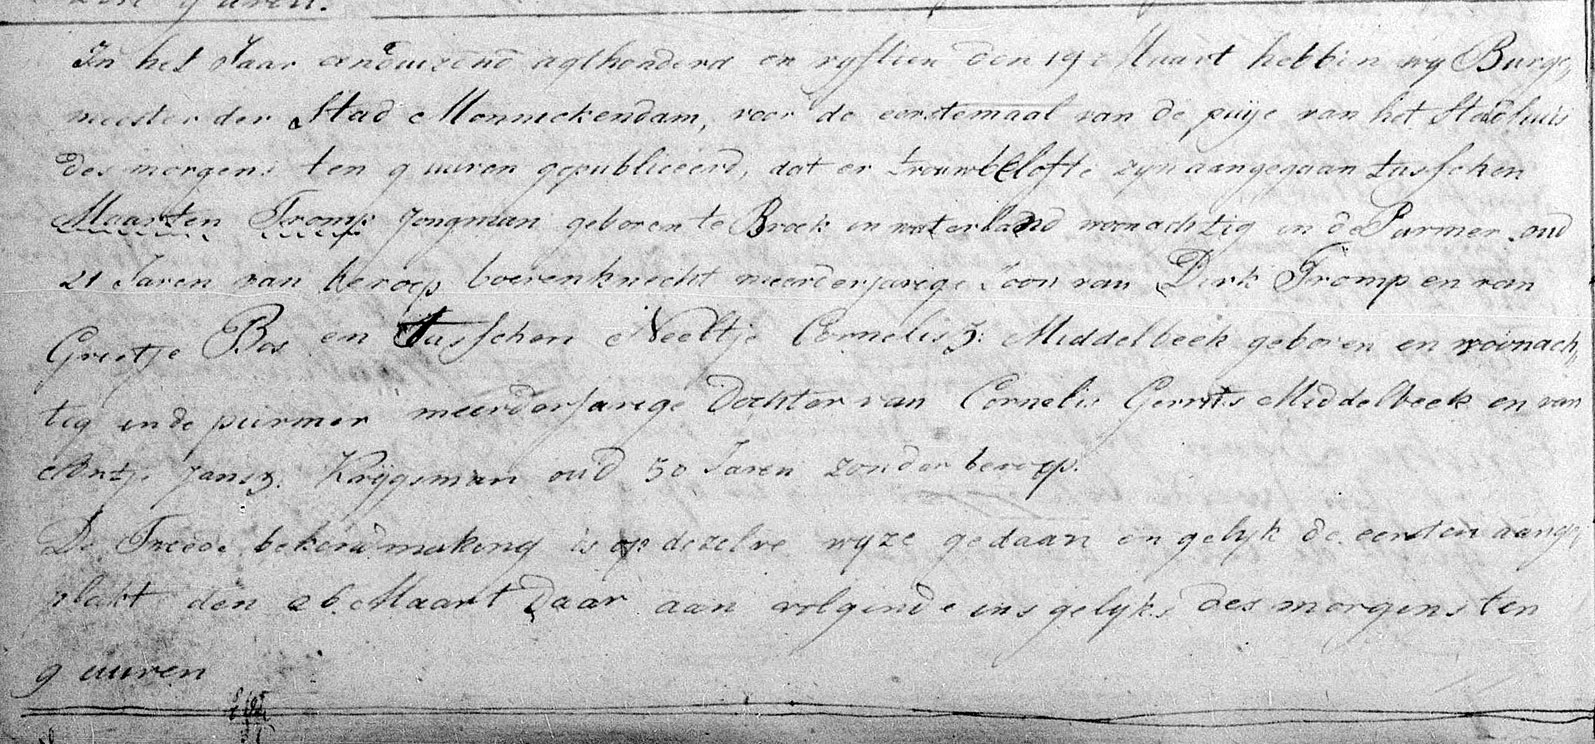 In het Jaar eenduizend agthonderd en vyftien den 19e Maart hebben wy Burge,
meester der Stad Monnickendam, voor de eerstemaal van de puije van het Stadhuis
des morgens ten 9 uuren gepubliceerd, dat er trouwbelofte zyn aangegaan tusschen
Maarten Tromp Jongman geboren te Broek in waterland woonachtig in de Purmer oud
21 Jaren van beroep boerenknecht meerderjarige Zoon van Dirk Tromp en van
Grietje Bos en Tusschen Neeltje Cornelisz: Middelbeek geboren en woonach,
tig in de purmer meerderjarige Dochter van Cornelis Gerrits Middelbeek en van
Antje Jansz. Krijgsman oud 30 Jaren zonder beroep.
De Tweede bekendmaking is op dezelve wyze gedaan en gelyk de eersten aange,
plakt den 26 Maart Daar aan volgende ins gelyks des morgens ten
9 uuren